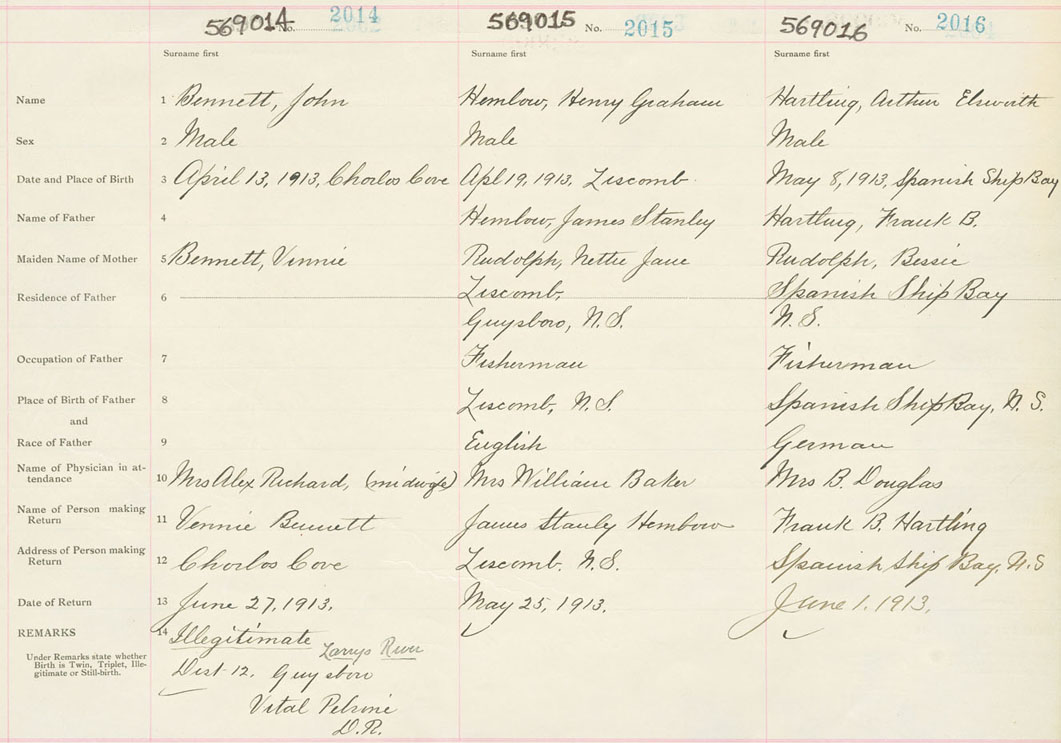 569014 No. 2014 569015 No. 2015 569016 No. 2016
Surname first Surname first Surname first
Name 1 Bennett, John Hemlow, Henry Graham Hartling, Arthur Elsworth
Sex 2 Male Male Male
Date and Place of Birth 3 April 13, 1913, Chorlos Cove Apl 19, 1913, Liscomb May 8, 1913, Spanish Ship Bay
Name of Father 4 Hemlow, James Stanley Hartling, Frank B.
Maiden Name of Mother 5 Bennett, Vennie Rudolph, Nettie Jane Rudolph, Bessie
Residence of Father 6 Liscomb, Spanish Ship Bay
Guysboro, N.S. N.S.
Occupation of Father 7 Fisherman Fisherman
Place of Birth of Father 8 Liscomb, N.S. Spanish Ship Bay, N.S.
and
Race of Father 9 English German
Name of Physician in at-
tendance 10 Mrs Alex Richard, (midwife) Mrs William Baker Mrs B. Douglas
Name of Person making
Return 11 Vennie Bennett James Stanley Hemlow Frank B. Hartling
Address of Person making
Return 12 Chorlos Cove Liscomb. N.S. Spanish Ship Bay, N.S
Date of Return 13 June 27, 1913. May 25, 1913. June 1. 1913.
REMARKS 14 Illegitimate Larrys River
Under Remarks state whether
Birth is Twin, Triplet, Ille-
gitimate or Still-birth.
Dist 12. Guysboro
Vital

D.R.